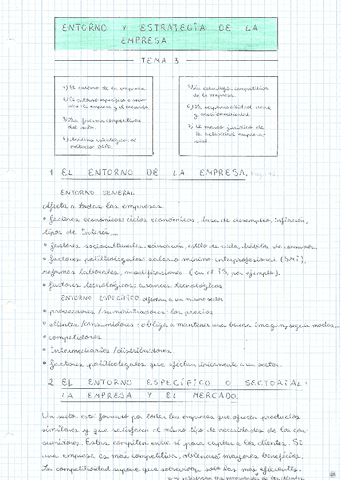 ENTORNO Y ESTRATEGIA DE LA
EMPRESA
TEMA 3
1) El entorno de la empresa
2) El entorno específico o sectorial:
la empresa y el mercado
3) Las fuerzas competitivas
del sector
4) Análisis estratégico: el
método DAFO
5) La estrategia competitiva
de la empresa
6) La responsabilidad social
y medioambiental
7) El marco jurídico de
la actividad empresarial
1 EL ENTORNO DE LA EMPRESA.
ENTORNO GENERAL
Afecta a todas las empresas
• factores económicos: ciclos económicos, tasa de desempleo, inflación,
tipos de interés...
• factores socioculturales: educación, estilo de vida, hábitos de consumo
• factores político-legales: salario mínimo interprofesional (SMI),
reformas laborales, modificaciones (en el IS, por ejemplo).
• factores tecnológicos: avances tecnológicos
ENTORNO ESPECÍFICO afectan a un mismo sector
• proveedores / suministradores: los precios
• clientes/consumidores: obliga a mantener una buena imagen, seguir modas...
• competidores
• intermediarios / distribuidores
• factores político-legales que afectan únicamente a un sector.
2 EL ENTORNO ESPECÍFICO O SECTORIAL:
LA EMPRESA Y EL MERCADO.
Un sector está formado por todas las empresas que ofrecen productos
similares y que satisfacen el mismo tipo de necesidades de los con-
sumidores. Estas compiten entre sí para captar a los clientes. Si
una empresa es más competitiva, obtendrá mayores beneficios.
La competitividad supone que sobrevivan solo las más eficientes.